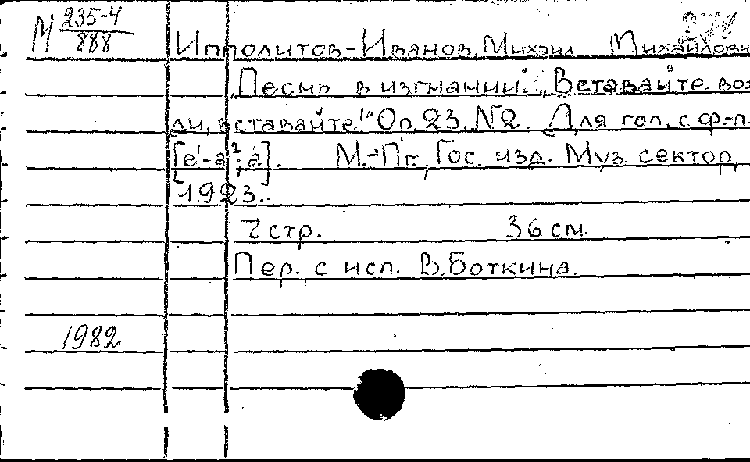 М 235-4
888
Ипполитов-Иванов, Михаил Михайлови
Песнь в изгнании. "Вставайте, вож
ди, вставайте!" Оп. 23. №2. Для гол. с ф.-п.
М.-Пг., Гос. изд. Муз. сектор,
1923.
7 стр. 36 см.
Пер. с исп. В. Боткина.
1982